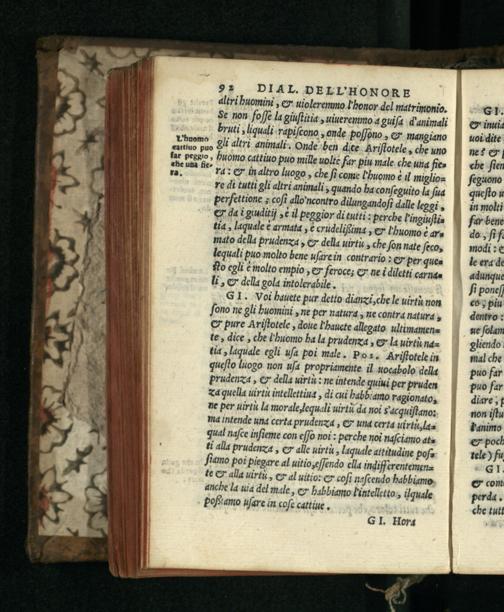 92 DIAL. DELL'HONORE
altri huomini, & uioleremmo l'honor del matrimonio.
Se non fosse la giustitia, uiueremmo a guisa d'animali
bruti, liquali rapiscono, onde possono, & mangiano
gli altri animali. Onde ben dice Aristotele, che uno
huomo cattiuo può mille uolte far piu male che una fie=
ra: & in altro luogo, che si come l'huomo è il miglio=
re di tutti gli altri animali, quando ha conseguito la sua
perfettione; così allo'ncontro dilungandosi dalle leggi,
& da i giuditij, è il peggior di tutti: perche l'ingiusti=
tia, laquale è armata, è crudelissima, & l'huomo è ar=
mato della prudenza, & della uirtù, che son nate seco,
lequali può molto bene usare in contrario: & per que=
sto egli è molto empio, & feroce, & ne i diletti carna=
li, & della gola intolerabile.
GI. Voi hauete pur detto dianzi, che le uirtù non
sono ne gli huomini, ne per natura, ne contra natura,
& pure Aristotele, doue l'hauete allegato ultimamen=
te, dice, che l'huomo ha la prudenza, & la uirtù na=
tia, laquale egli usa poi male. POS. Aristotele in
questo luogo non usa propriamente il uocabolo della
prudenza, & della uirtù: ne intende quiui per pruden
za quella uirtù intellettiua, di cui habbiamo ragionato,
ne per uirtù la morale, lequali uirtù da noi s'acquistano:
ma intende una certa prudenza, & una certa uirtù, la=
qual nasce insieme con esso noi: perche noi nasciamo at=
ti alla prudenza, & alle uirtù, laquale attitudine pos=
siamo poi piegare al uitio, essendo ella indifferentemen=
te & alla uirtù, & al uitio: & così nascendo habbiamo
anche la uia del male, & habbiamo l'intelletto, ilquale
possiamo usare in cose cattiue.
GI. Hora
L'huomo
cattiuo può
far peggio,
che una fie=
ra.
GI.
& inuia
uoi dite
che sien
seguono
questo
in molti
far bene
modi:
le era de
adunque
si poness
dentro:
ue solam
gliendo
mal che
può far
può far
diare,
non istu
l'animo
& poch
tele)
GI.
& come
perda.
che tutt